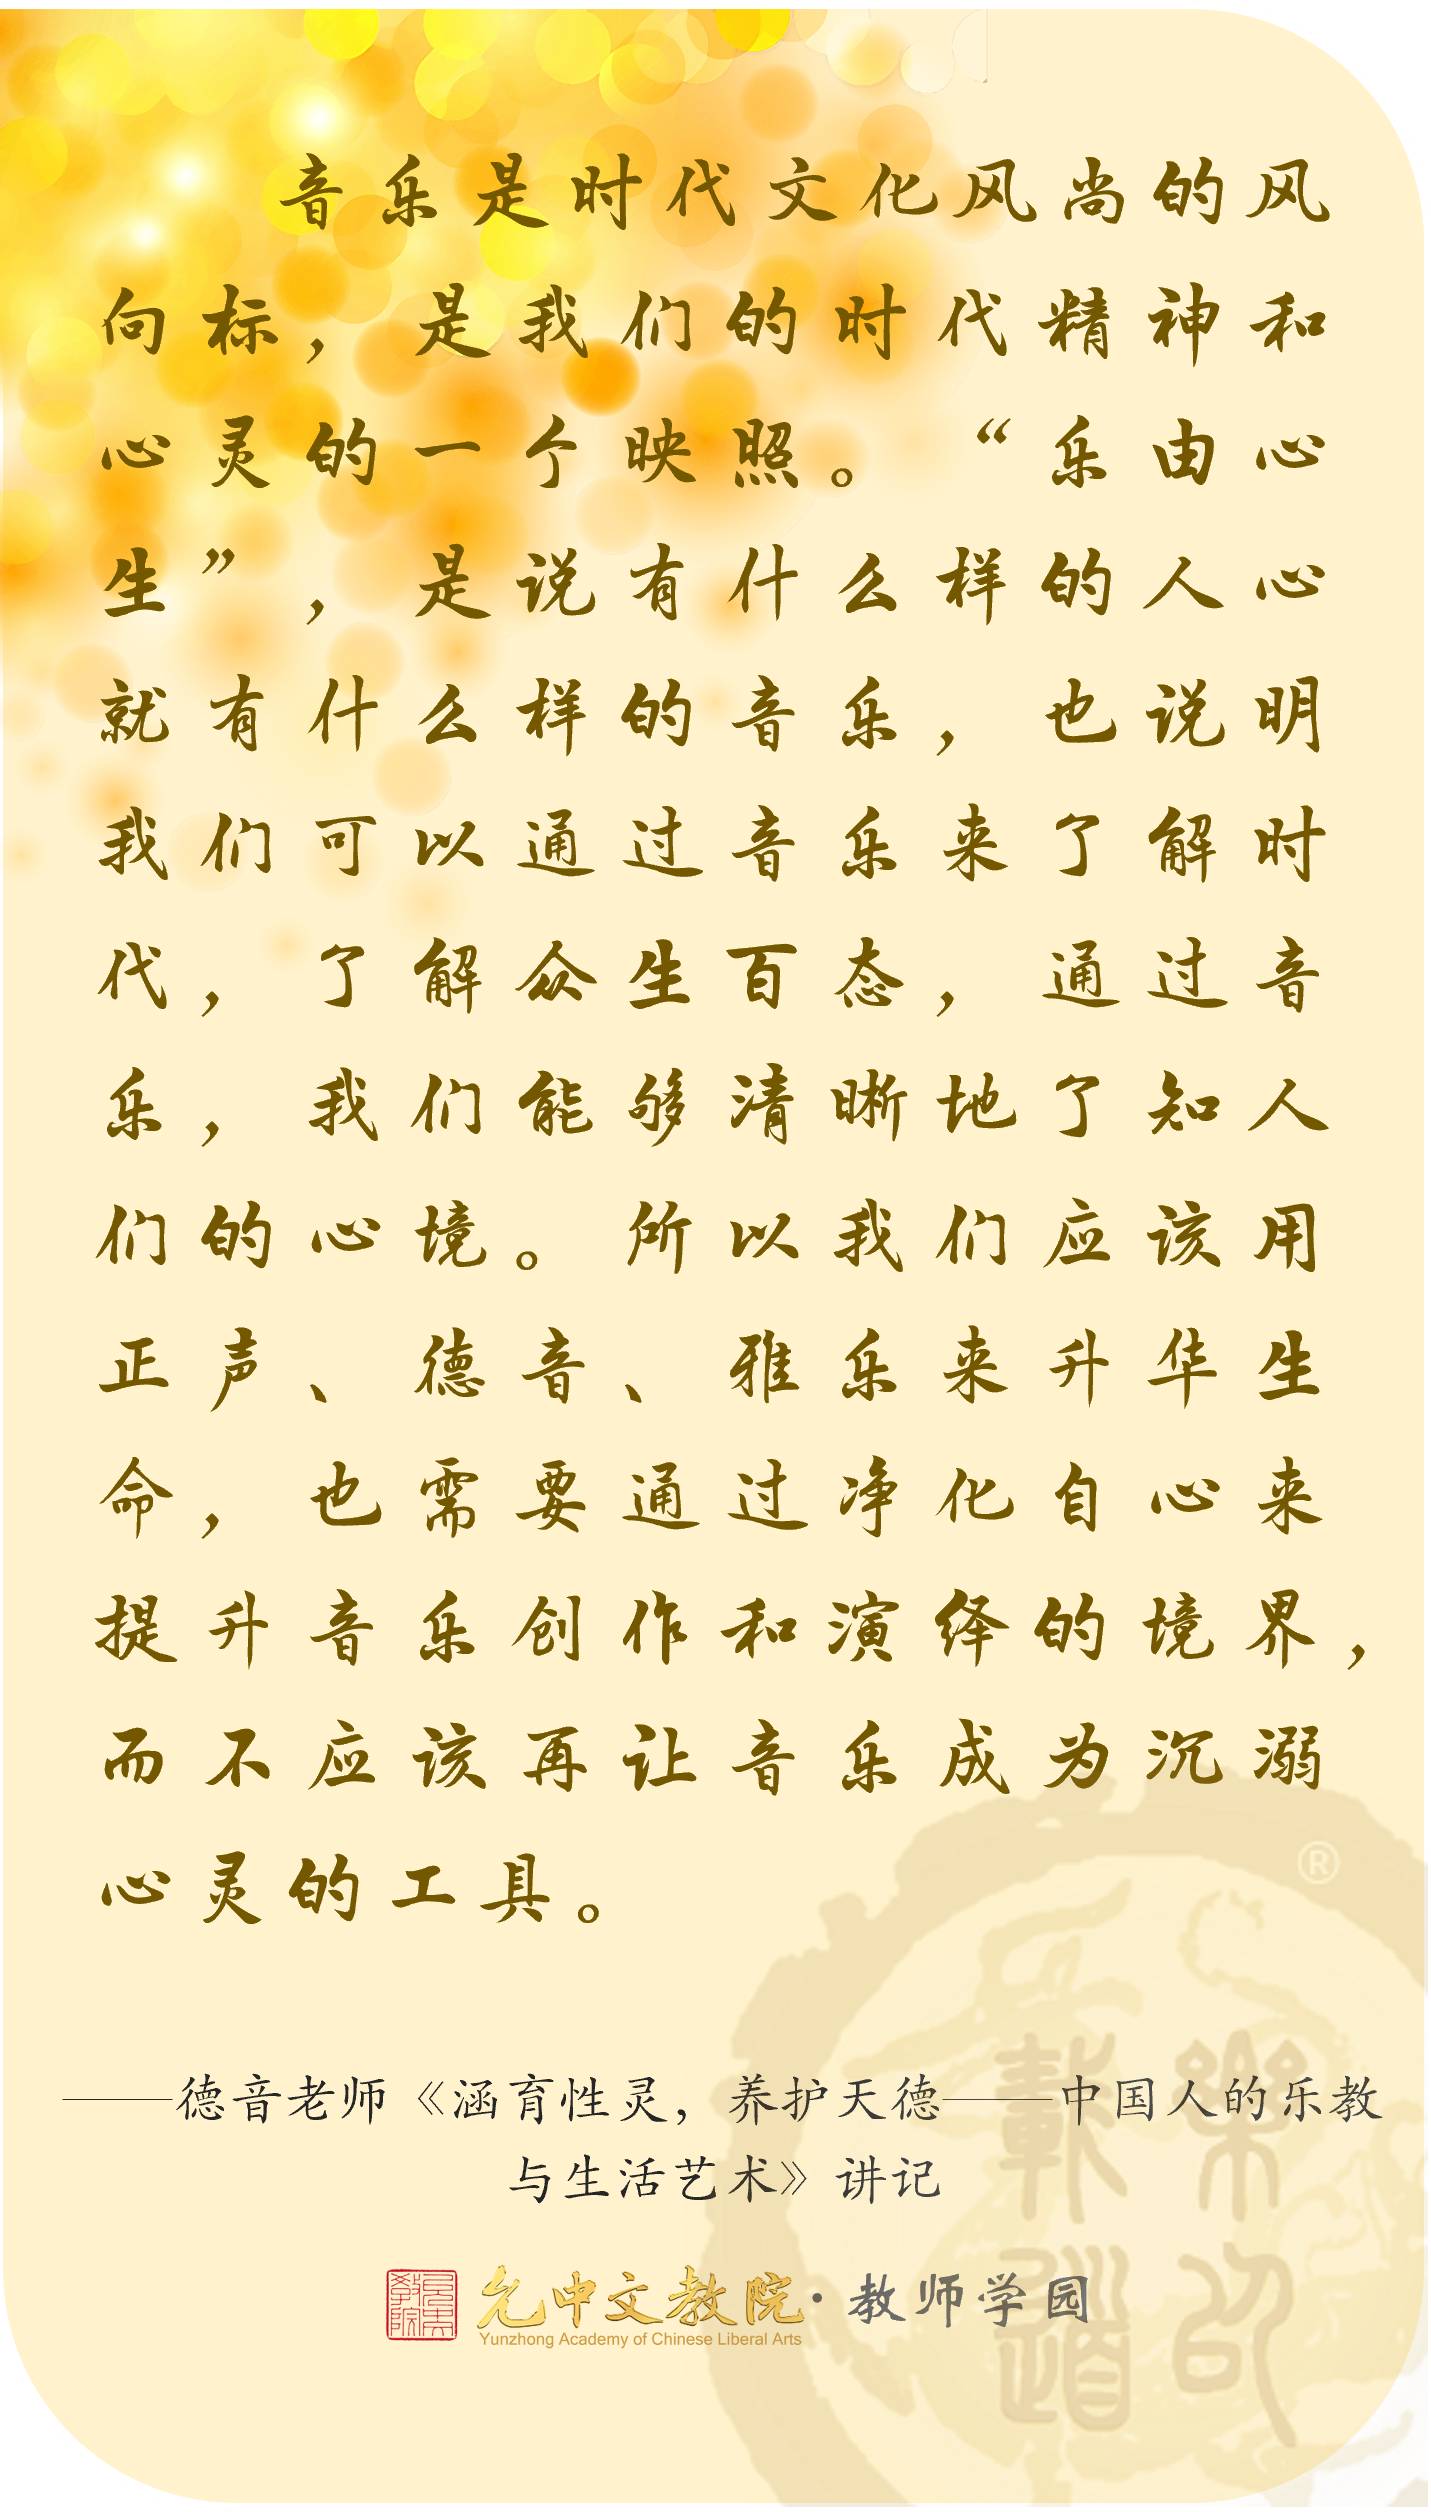 音乐是时代文化风尚的风
向标，是我们的时代精神和
心灵的一个映照。“乐由心
生”，是说有什么样的人心
就有什么样的音乐，也说明
我们可以通过音乐来了解时
代，了解众生百态，通过音
乐，我们能够清晰地了知人
们的心境。所以我们应该用
正声、德音、雅乐来升华生
命，也需要通过净化自心来
提升音乐创作和演绎的境界，
而不应该再让音乐成为沉溺
心灵的工具。
®
——德音老师《涵育性灵，养护天德——中国人的乐教
与生活艺术》讲记
允中文教院·教师学园
Yunzhong Academy of Chinese Liberal Arts
樂以
載道